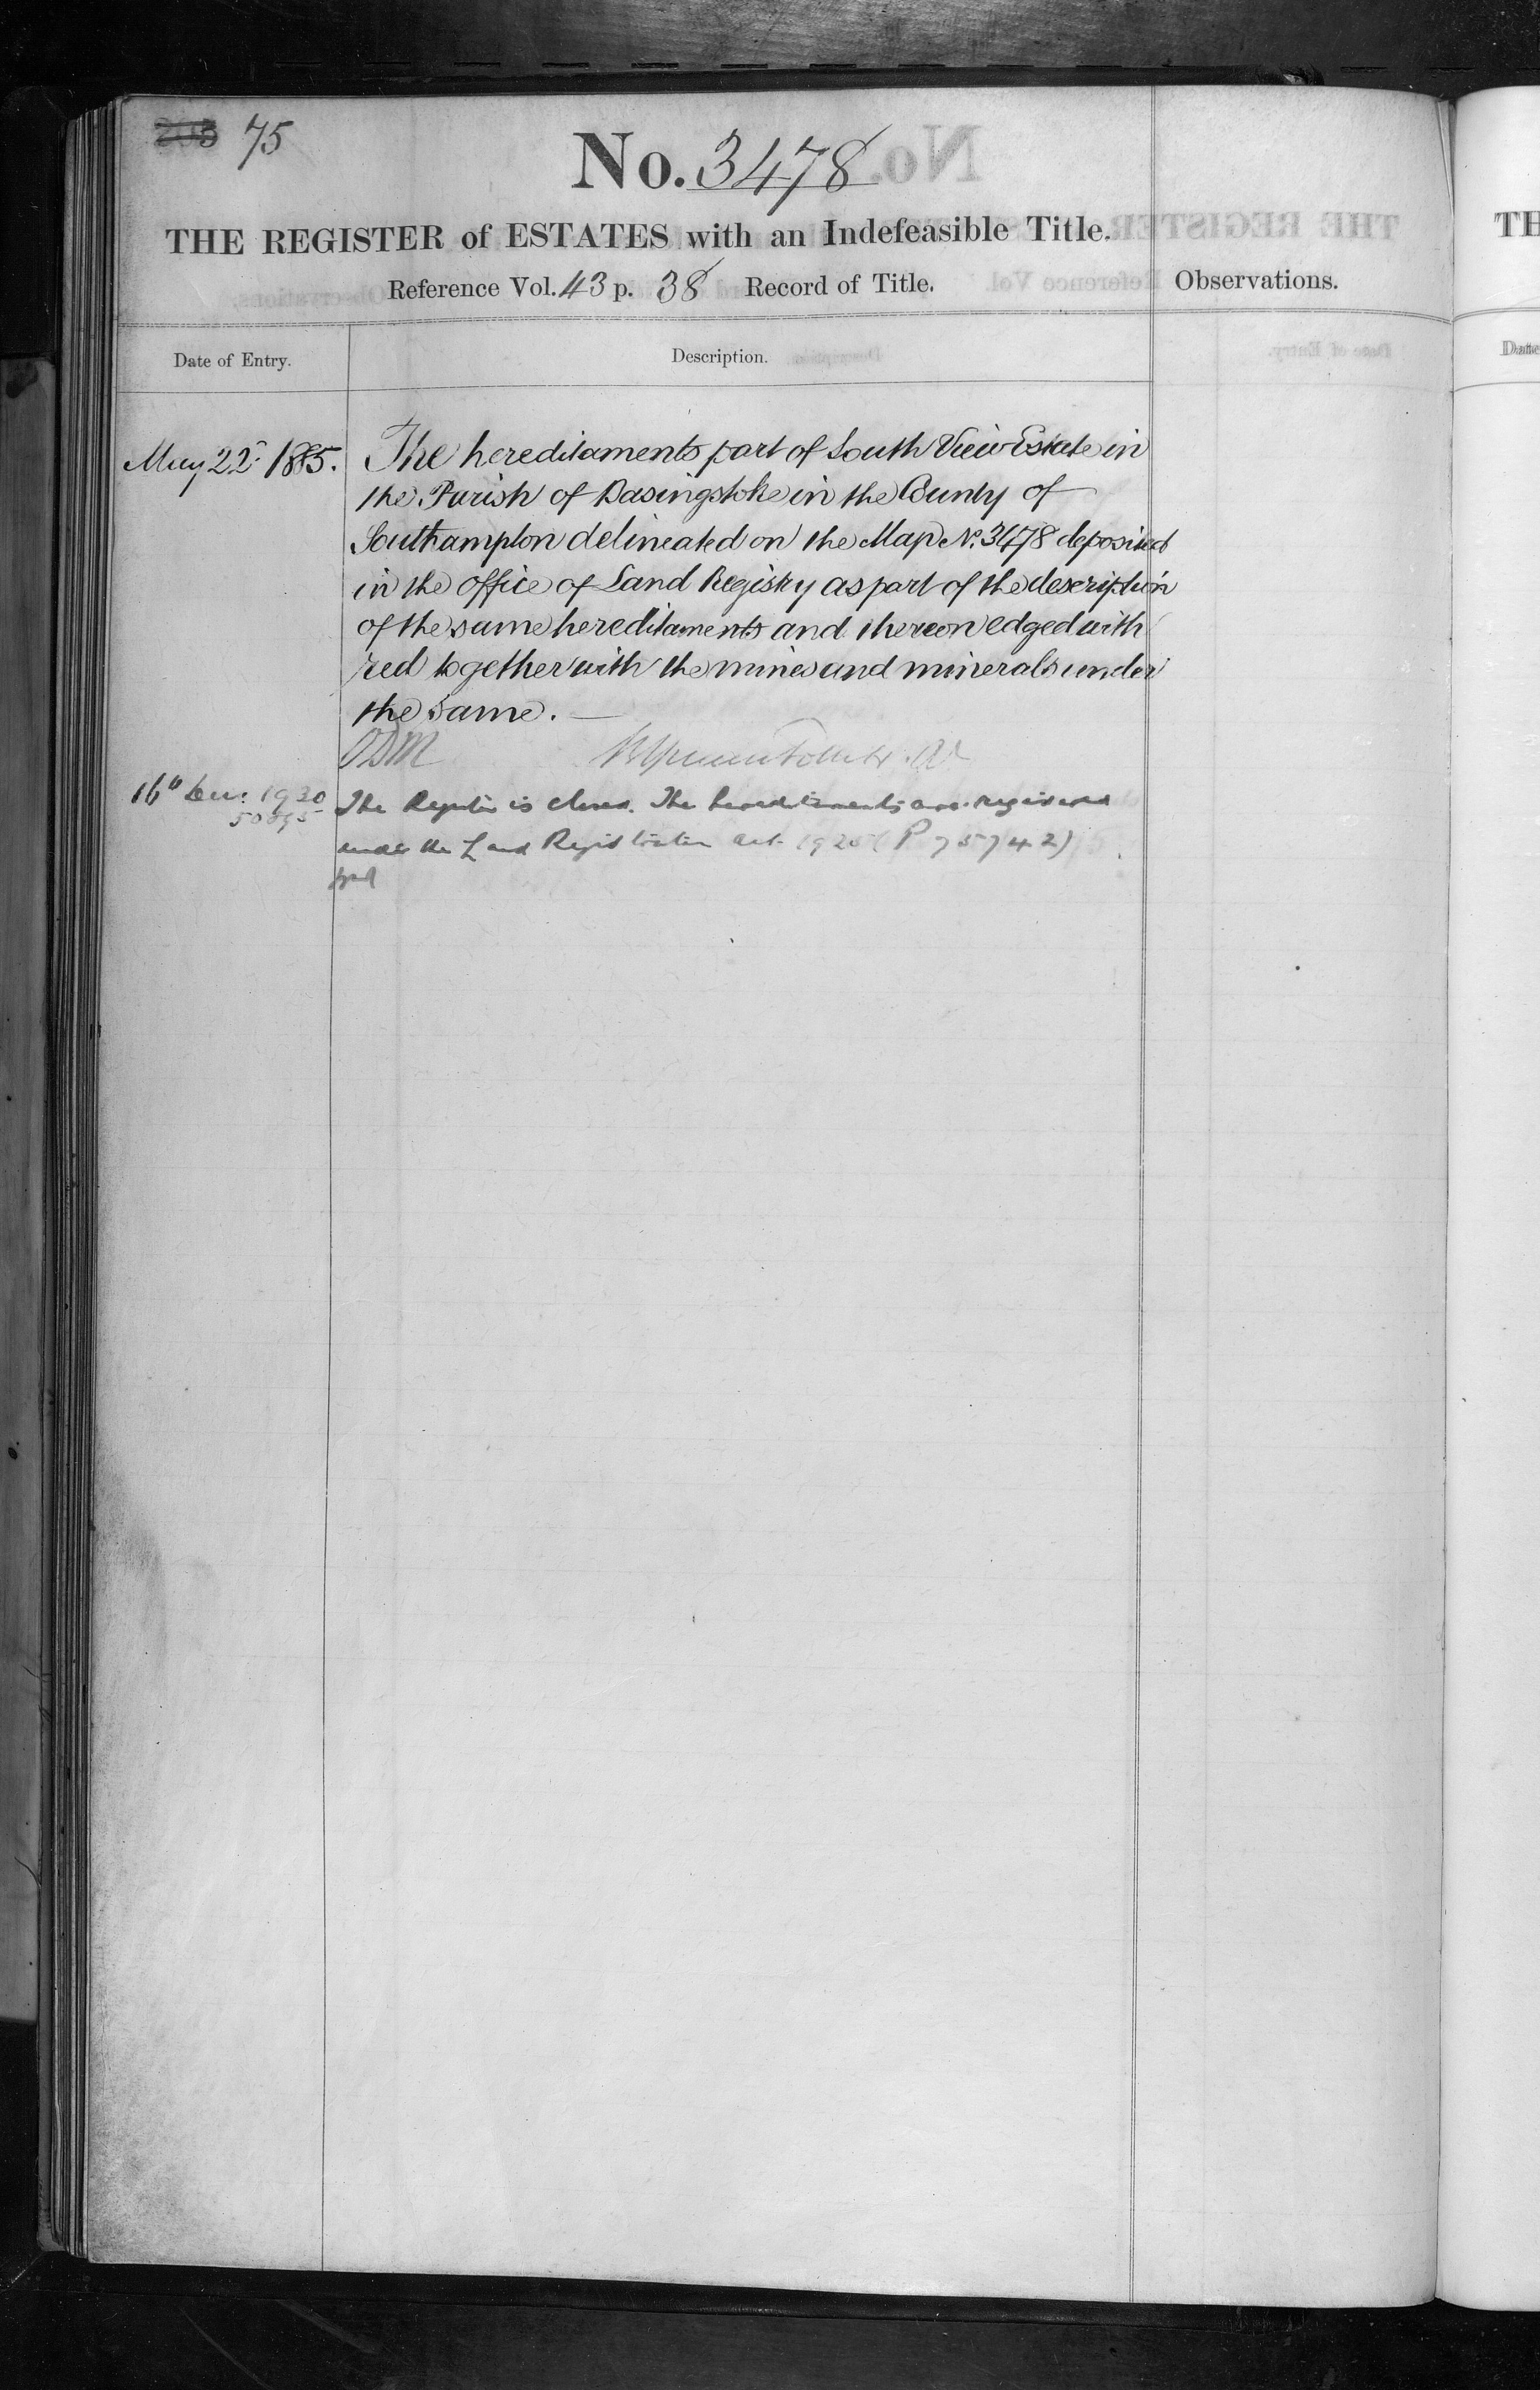 75
No. 3478
THE REGISTER of ESTATES with an Indefeasible Title.
Reference Vol. 43 p. 38 Record of Title.
Observations.
Date of Entry.
Description.
May 22 1885.
The hereditaments part of South View Estate in
the Parish of Basingstoke in the County of
Southampton delineated on the Map No. 3478 deposited
in the office of Land Registry as part of the description
of the same hereditaments and thereon edged with
red together with the mines and minerals under
the same.
16th Dec: 1930
The Register is closed. The hereditaments are registered
under the Land Registration Act 1925 (P 75742)